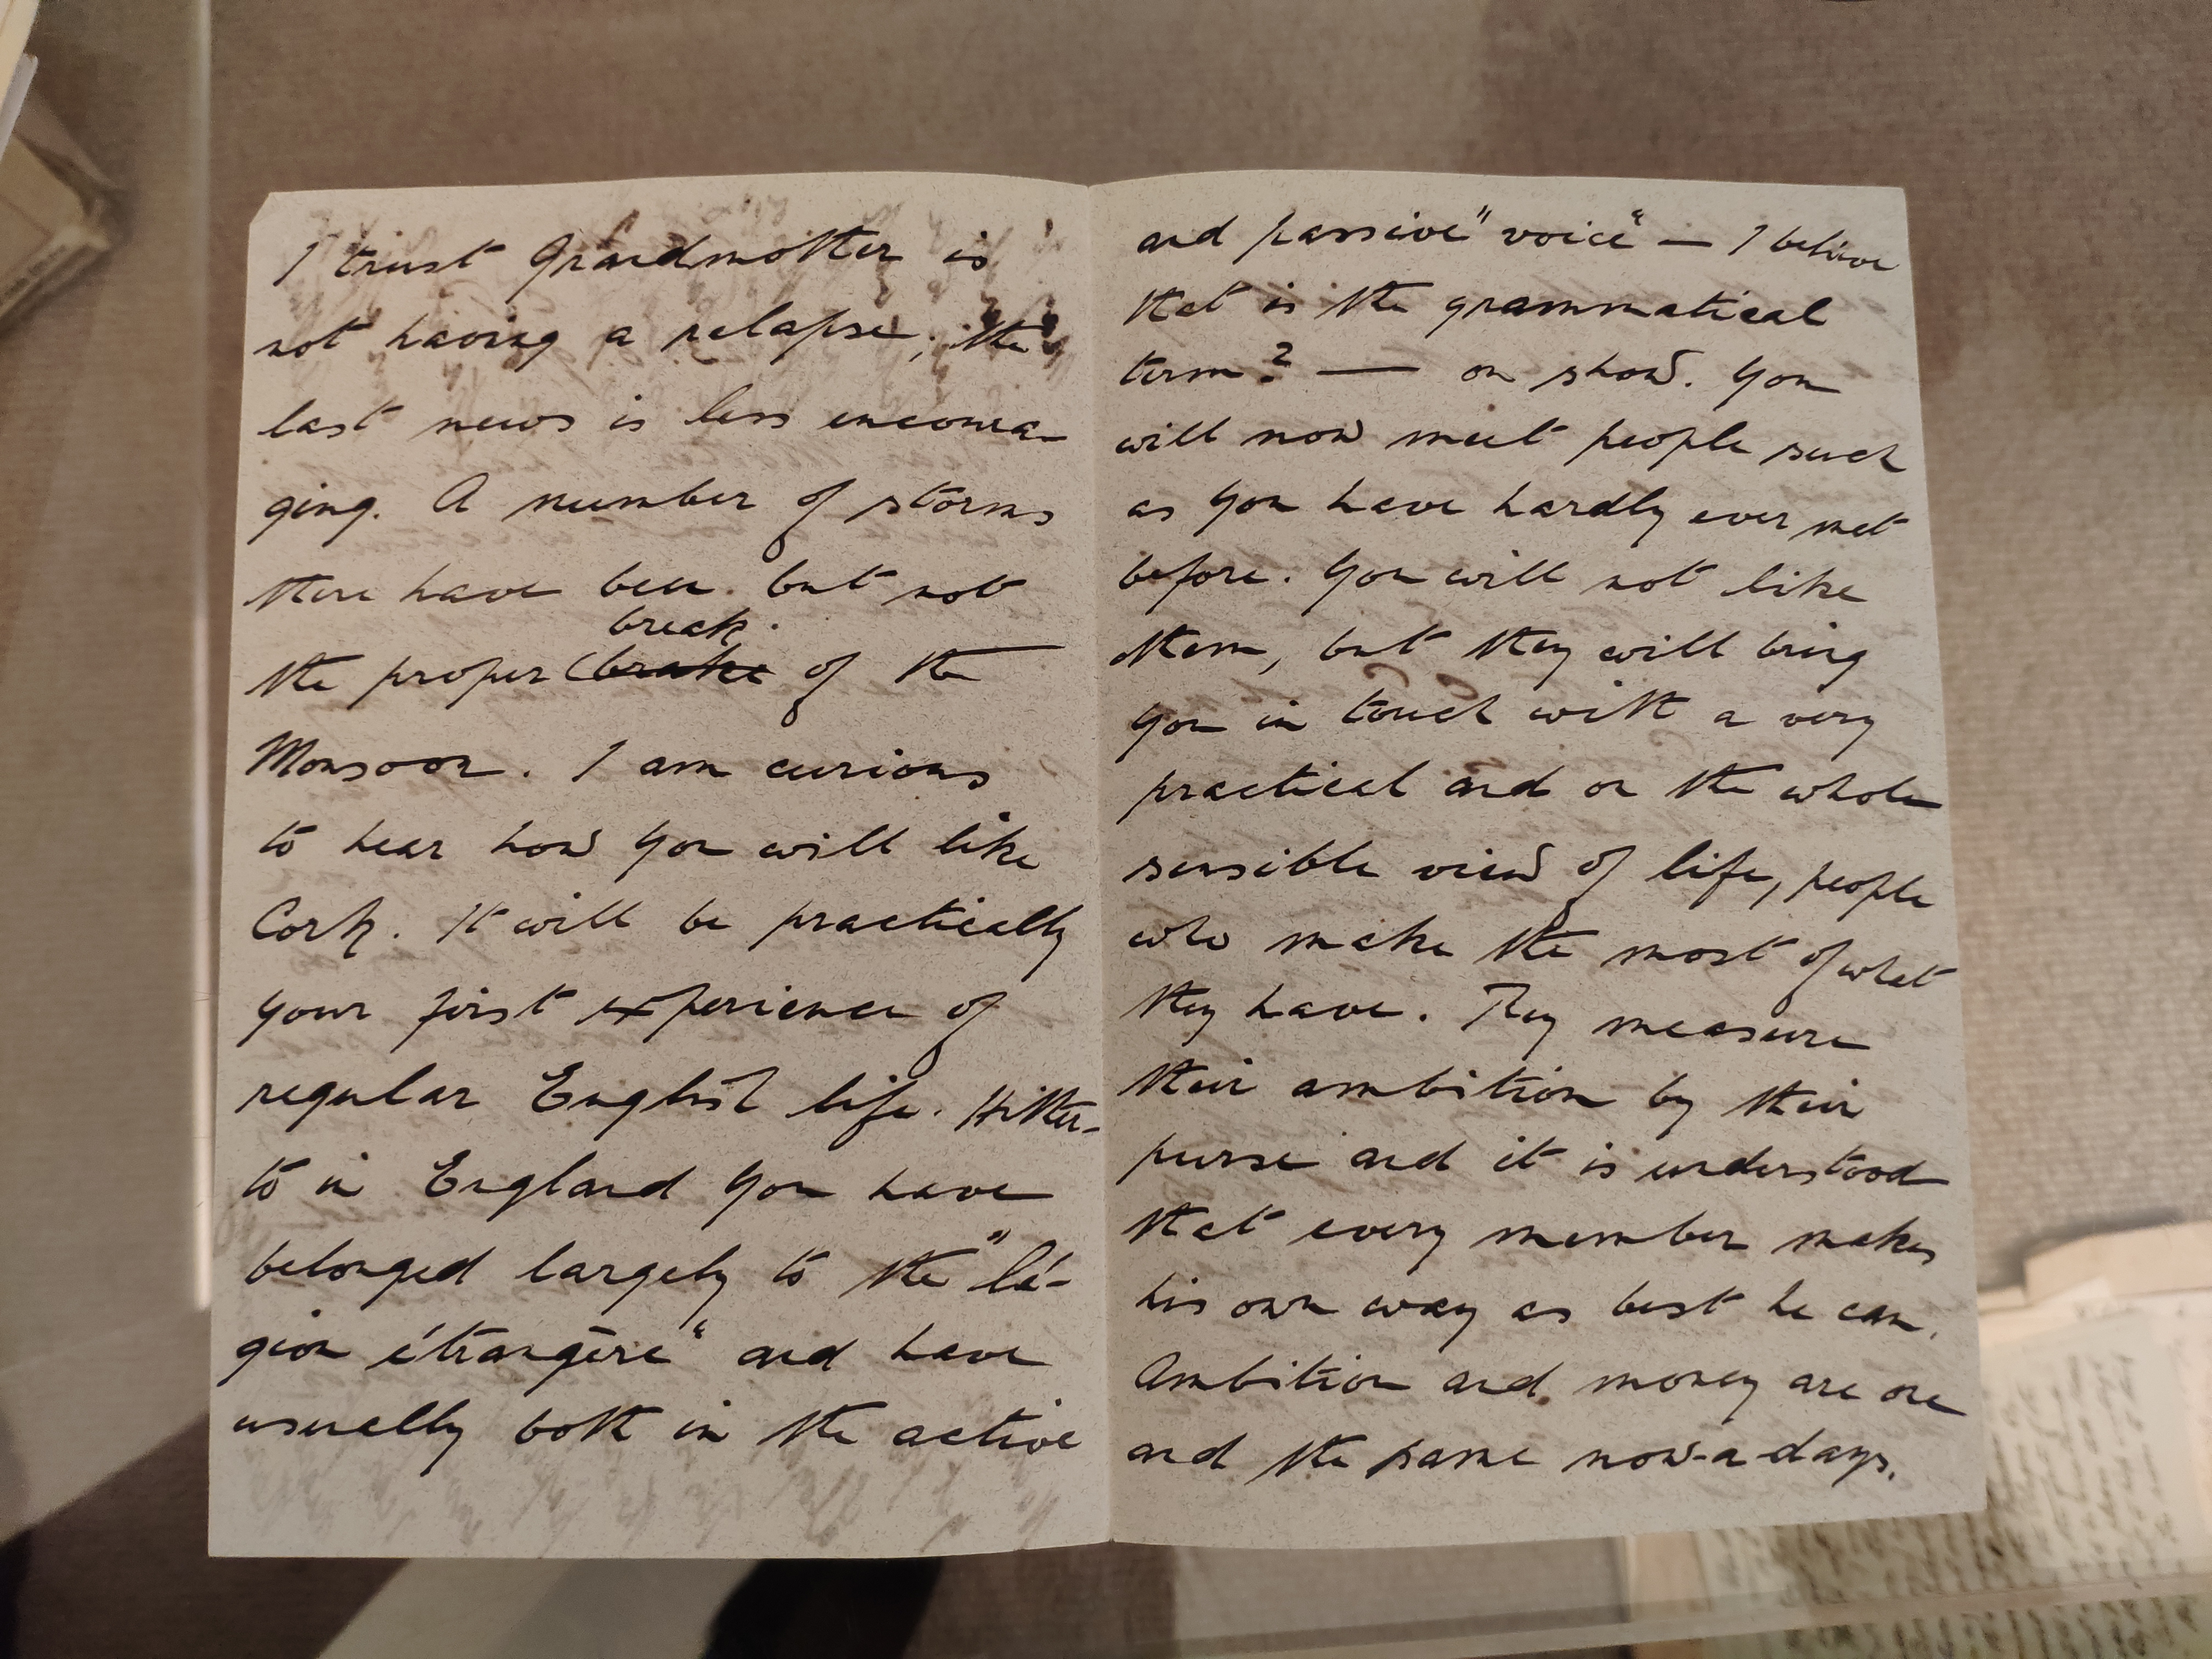 I trust Grandmother is
not having a relapse; the
last news is less encoura-
ging. A number of storms
there have been but not
break
the proper brake of the
Monsoon. I am curious
to hear how you will like
Cork. It will be practically
your first experience of
regular English life. Hither-
to in England you have
belonged largely to the "lé-
gion étrangère" and have
usually both in the active
and passive "voice" — I believe
that is the grammatical
term? — on show. You
will now meet people such
as you have hardly ever met
before. You will not like
them, but they will bring
you in touch with a very
practical and on the whole
sensible view of life, people
who make the most of what
they have. They measure
their ambition by their
purse and it is understood
that every member makes
his own way as best he can.
Ambition and money are one
and the same now-a-days.